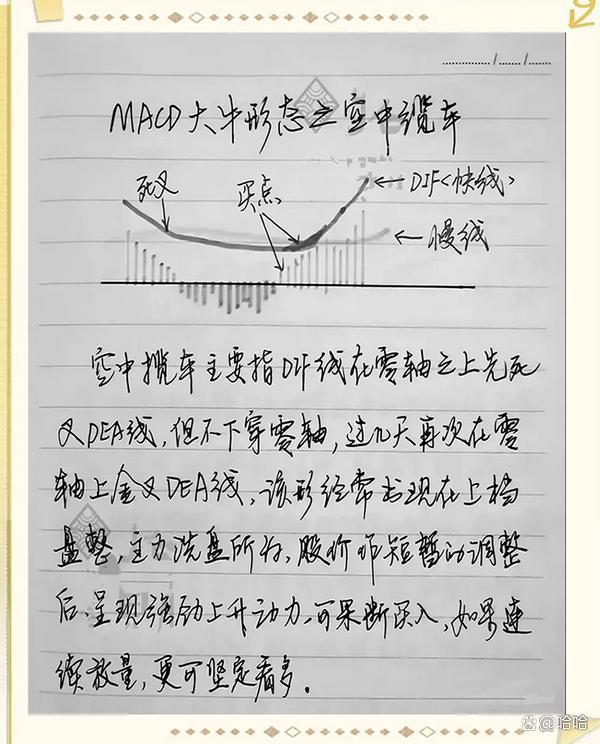 ....../....../......
MACD大牛形态之空中缆车
死叉
买点
←DIF<快线>
←慢线
空中揽车主要指DIF线在零轴之上先死
叉DEA线,但不下穿零轴,过几天再次在零
轴上金叉DEA线,该形经常出现在上档
盘整,主力洗盘所为,股价作短暂的调整
后,呈现强劲上升动力,可果断买入,如果连
续放量,更可坚定看多.
哈哈